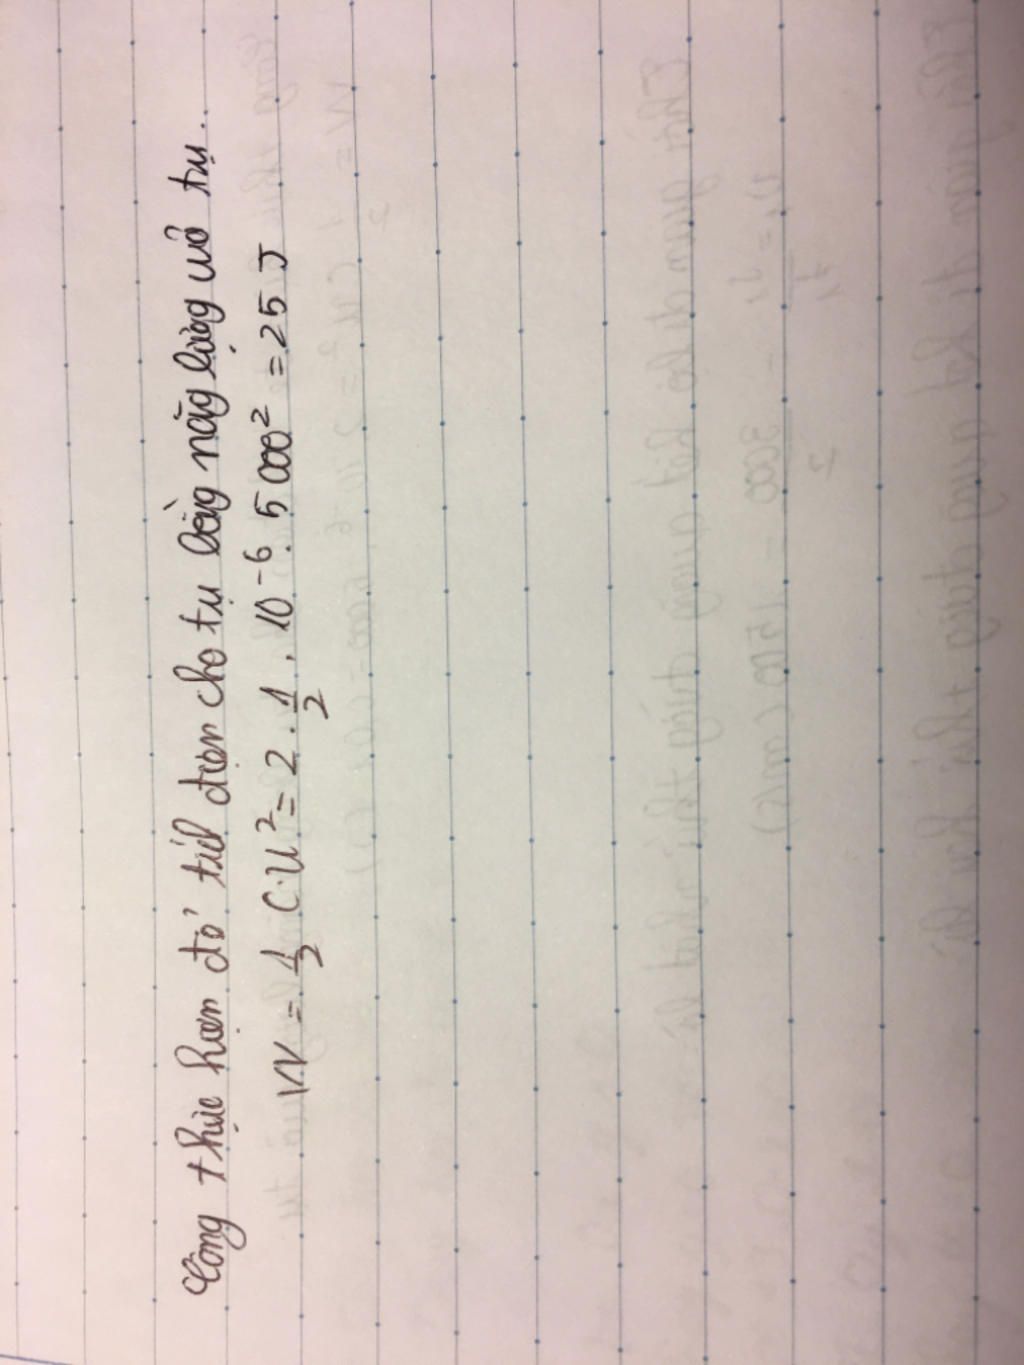 Công thực hiện để tích điện cho tụ bằng năng lượng của tụ..
W = 1/2 C.U² = 2 . 1/2 . 10⁻⁶ . 5000² = 25 J